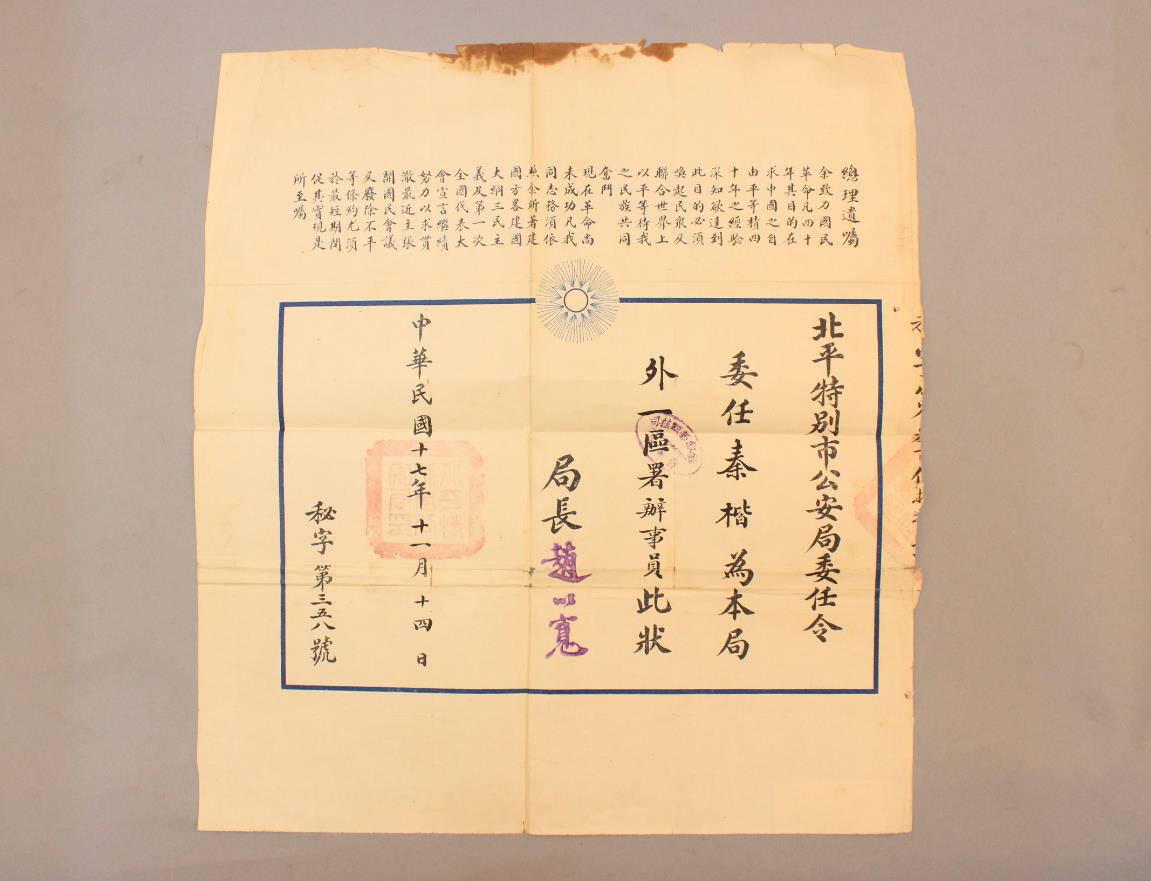 總理遺囑
余致力國民
革命凡四十
年其目的在
求中國之自
由平等積四
十年之經驗
深知欲達到
此目的必須
喚起民衆及
聯合世界上
以平等待我
之民族共同
奮鬥
現在革命尚
未成功凡我
同志務須依
照余所著建
國方畧建國
大綱三民主
義及第一次
全國代表大
會宣言繼續
努力以求貫
澈最近主張
開國民會議
及廢除不平
等條約尤須
於最短期間
促其實現是
所至囑
北平特別市公安局委任令
委任秦楷為本局
外一區署辦事員此狀
局長趙以寬
中華民國十七年十一月十四日
秘字第三五八號